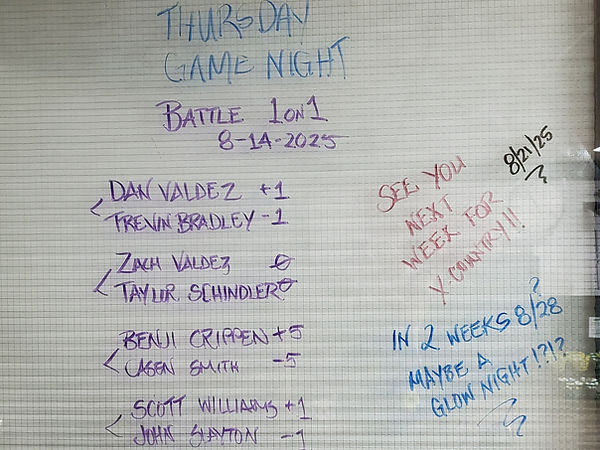 THURSDAY
GAME NIGHT
BATTLE 1 ON 1
8-14-2025
DAN VALDEZ +1
TREVIN BRADLEY -1
ZACH VALDEZ 0
TAYLOR SCHINDLER 0
BENJI CRIPPEN +5
CASEN SMITH -5
SCOTT WILLIAMS +1
JOHN SLAYTON -1
8/21/25
SEE YOU
NEXT
WEEK FOR
X COUNTRY!!
?
IN 2 WEEKS 8/28
MAYBE A
GLOW NIGHT!?!?